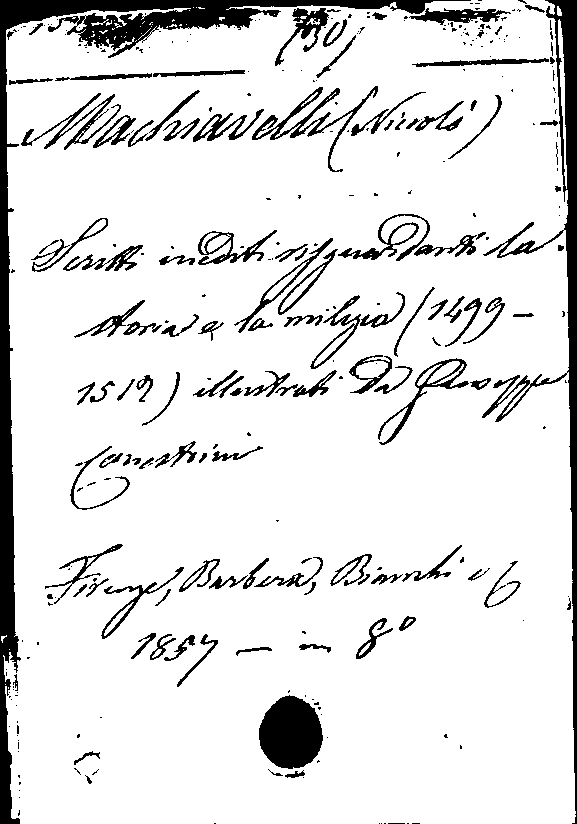 (30)
Machiavelli (Niccolò)
Scritti inediti risguardanti la
storia e la milizia (1499–
1512) illustrati da Giuseppe
Canestrini
Firenze, Barbera, Bianchi e C
1857 — in 8º